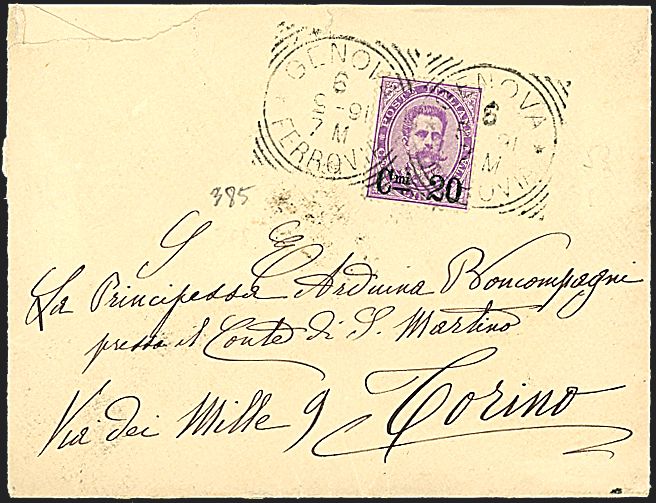 GENOVA
6
9-91
7 M
FERROVIA
GENOVA
6
91
M
POSTE ITALIANE
Cmi 20
385
S E
La Principessa Arduina Boncompagni
presso il Conte di S. Martino
Via dei Mille 9 Torino